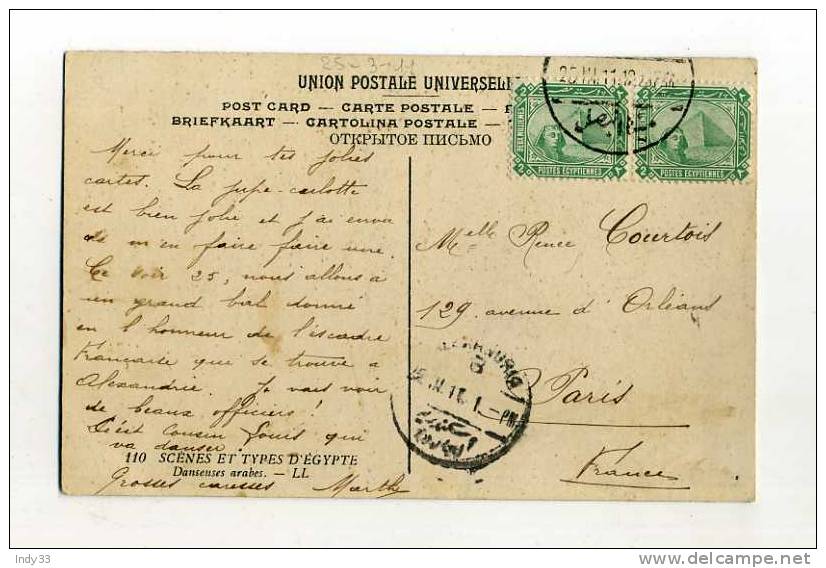 25-3-11
UNION POSTALE UNIVERSELLE
POST CARD — CARTE POSTALE —
BRIEFKAART — CARTOLINA POSTALE —
ОТКРЫТОЕ ПИСЬМО
25 III 11
2 POSTES EGYPTIENNES ٢
2 POSTES EGYPTIENNES ٢
Merci pour tes jolies
cartes. La jupe-culotte
est bien jolie et j'ai envie
de m'en faire faire une.
Ce soir 25, nous allons a
un grand bal donné
en l honneur de l'éscadre
Francaise qui se trouve a
Alexandrie. Je vais voir
de beaux officiers!
C'est cousin Louis qui
va danser.
Grosses caresses Marthe
Melle Renée Courtois
129 avenue d'Orléans
Paris
France
ALEXANDRIA
B
25 III 11 1 - PM
110 SCÈNES ET TYPES D'ÉGYPTE
Danseuses arabes. — LL
Indy33
delcampe.net